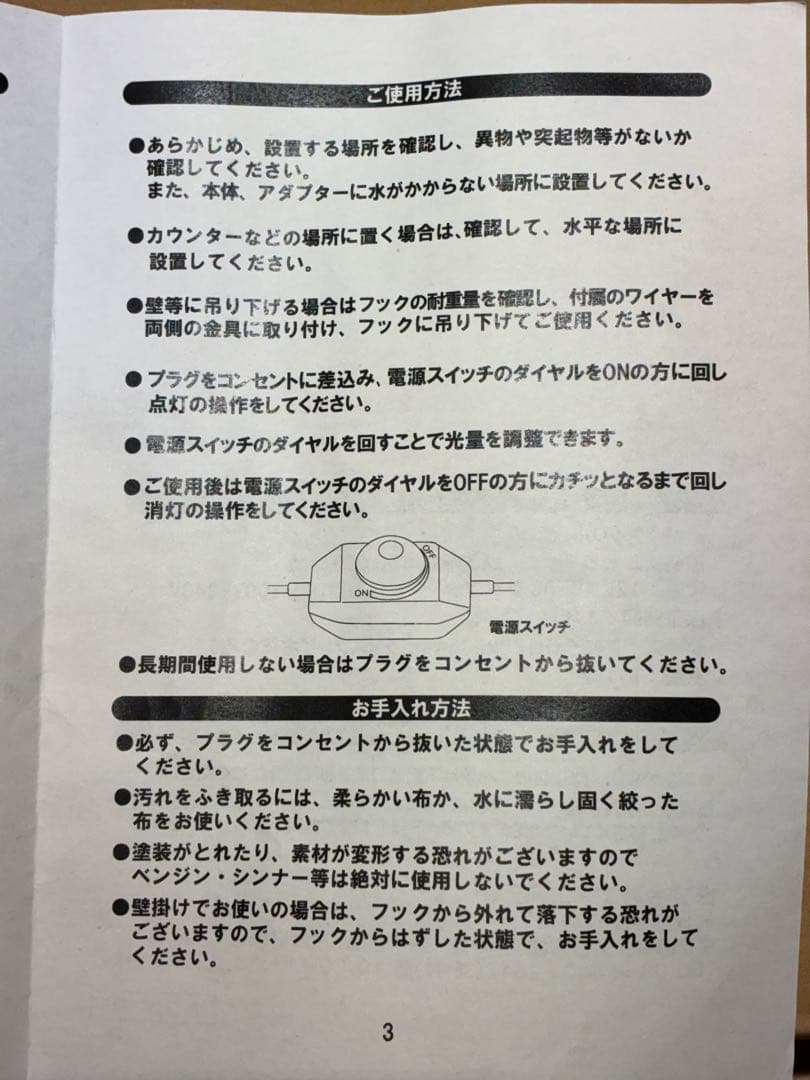 ご使用方法
●あらかじめ、設置する場所を確認し、異物や突起物等がないか
確認してください。
また、本体、アダプターに水がかからない場所に設置してください。
●カウンターなどの場所に置く場合は、確認して、水平な場所に
設置してください。
●壁等に吊り下げる場合はフックの耐重量を確認し、付属のワイヤーを
両側の金具に取り付け、フックに吊り下げてご使用ください。
●プラグをコンセントに差込み、電源スイッチのダイヤルをONの方に回し
点灯の操作をしてください。
●電源スイッチのダイヤルを回すことで光量を調整できます。
●ご使用後は電源スイッチのダイヤルをOFFの方にカチッとなるまで回し
消灯の操作をしてください。
OFF
ON
電源スイッチ
●長期間使用しない場合はプラグをコンセントから抜いてください。
お手入れ方法
●必ず、プラグをコンセントから抜いた状態でお手入れをして
ください。
●汚れをふき取るには、柔らかい布か、水に濡らし固く絞った
布をお使いください。
●塗装がとれたり、素材が変形する恐れがございますので
ベンジン・シンナー等は絶対に使用しないでください。
●壁掛けでお使いの場合は、フックから外れて落下する恐れが
ございますので、フックからはずした状態で、お手入れをして
ください。
3